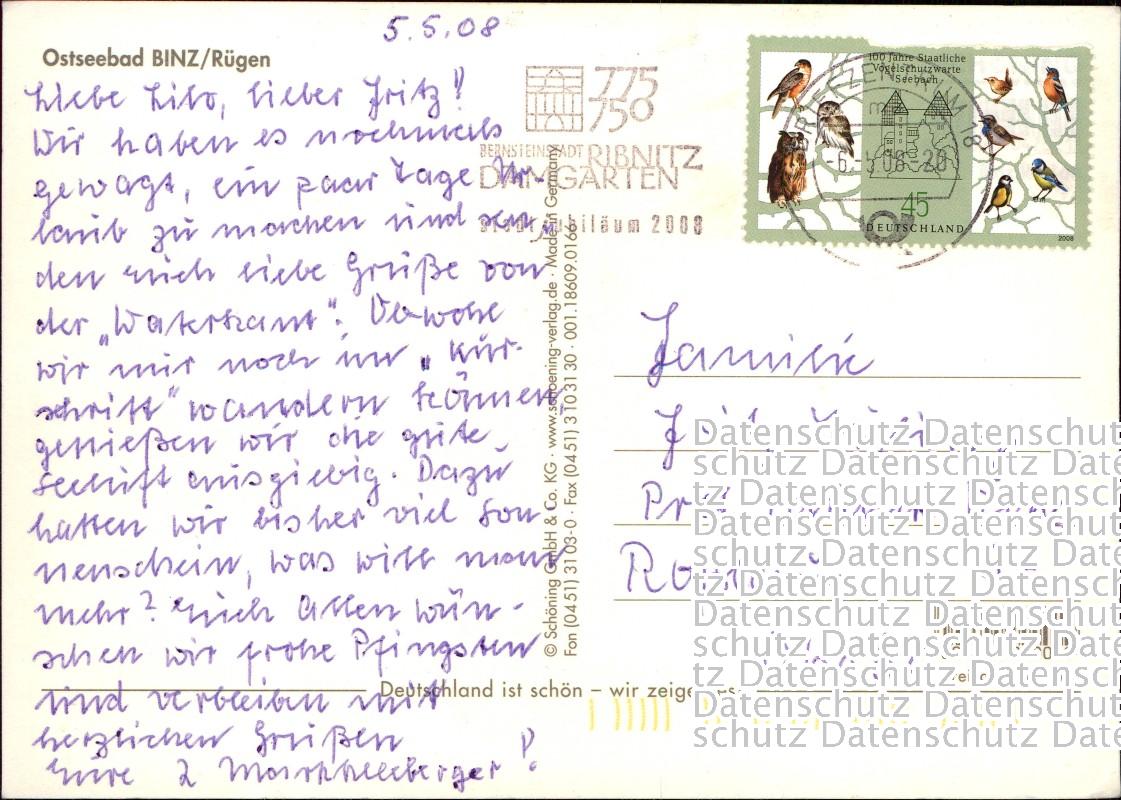 5.5.08
Ostseebad BINZ/Rügen
Liebe Lilo, lieber Fritz!
Wir haben es nochmals
gewagt, ein paar Tage Ur-
laub zu machen und sen-
den Euch liebe Grüße von
der „Waterkant“. Obwohl
wir nur noch im „Kur-
schritt“ wandern können,
genießen wir die gute
Seeluft ausgiebig. Dazu
hatten wir bisher viel Son-
nenschein, was will man
mehr? Euch Allen wün-
schen wir frohe Pfingsten
und verbleiben mit
herzlichen Grüßen
Eure 2 Markkleeberger!
775
750
BERNSTEINSTADT RIBNITZ
DAMGARTEN
Stadtjubiläum 2008
100 Jahre Staatliche
Vogelschutzwarte
Seebach
45
DEUTSCHLAND
2008
BRIEFZENTRUM 18
© Schöning GmbH & Co. KG · www.schoening-verlag.de · Made in Germany
Fon (0451) 3103-0 · Fax (0451) 3103130 · 001.18609.0166
Familie
Deutschland ist schön – wir
Datenschutz Datenschut
schutz Datenschutz Date
tz Datenschutz Datensch
Datenschutz Datenschut
schutz Datenschutz Date
tz Datenschutz Datensch
Datenschutz Datenschut
schutz Datenschutz Date
tz Datenschutz Datensch
Datenschutz Datenschut
schutz Datenschutz Date